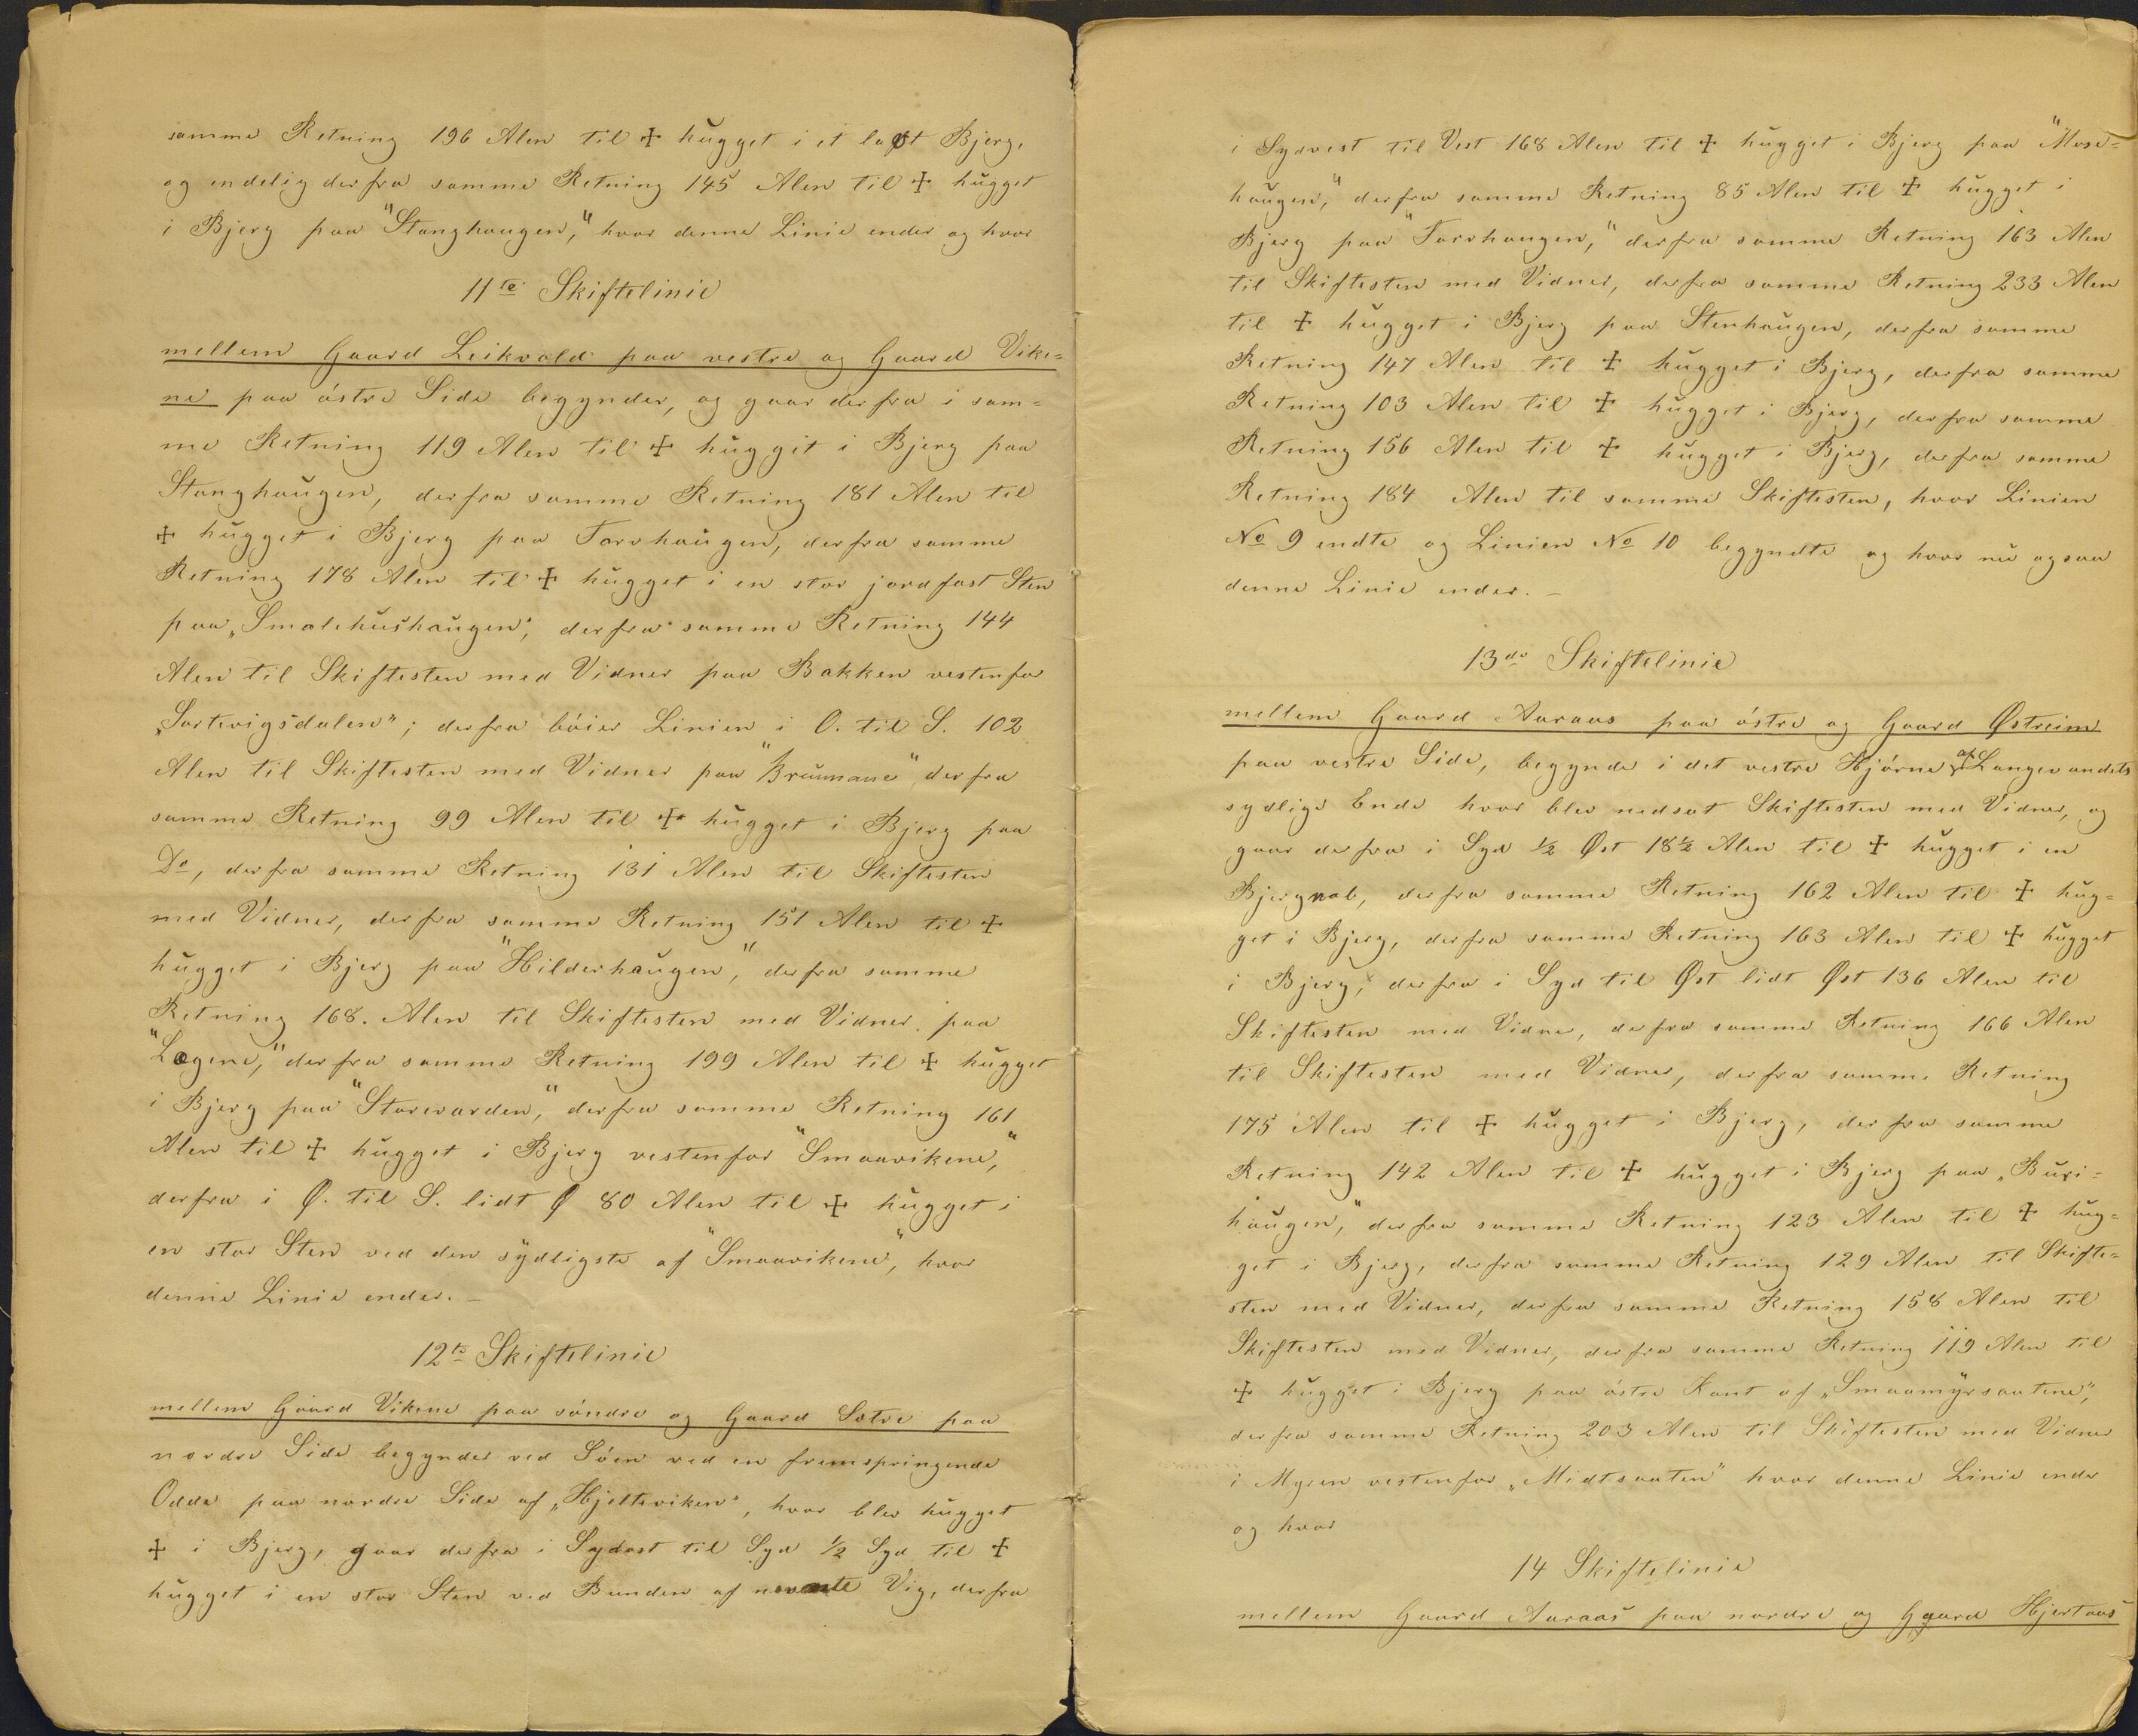 samme Retning 196 Alen til ☩ hugget i et laøt Bjerg,
og endelig derfra samme Retning 145 Alen til ☩ hugget
i Bjerg paa "Stanghaugen," hvor denne Linie ender og hvor
11te Skiftelinie
mellem Gaard Leikvold paa vestre og Gaard Vike=
ne paa östre Side begynder, og gaar derfra i sam=
me Retning 119 Alen til ☩ hugget i Bjerg paa
Stanghaugen, derfra samme Retning 181 Alen til
☩ hugget i Bjerg paa Torvhaugen, derfra samme
Retning 178 Alen til ☩ hugget i en stor jordfast Sten
paa „Smalehushaugen", derfra samme Retning 144
Alen til Skiftesten med Vidner paa Bakken vestenfor
„Sortevigsdalen"; derfra böier Linien i O. til S. 102
Alen til Skiftesten med Vidner paa "Brunnane" derfra
samme Retning 99 Alen til ☩ hugget i Bjerg paa
Do, derfra samme Retning 131 Alen til Skiftesten
med Vidner, derfra samme Retning 151 Alen til ☩
hugget i Bjerg paa "Hilderhaugen," derfra samme
Retning 168. Alen til Skiftesten med Vidner paa
"Lægene," derfra samme Retning 199 Alen til ☩ hugget
i Bjerg paa "Storevarden," derfra samme Retning 161
Alen til ☩ hugget i Bjerg vestenfor "Smaavikene,"
derfra i Ø. til S. lidt Ø 80 Alen til ☩ hugget i
en stor Sten ved den sydligste af "Smaavikene", hvor
denne Linie ender. –
12te Skiftelinie
mellem Gaard Vikene paa söndre og Gaard Sætre paa
nordre Side begynder ved Söen ved en fremspringende
Odde paa nordre Side af „Hjelteviken", hvor blev hugget
☩ i Bjerg, gaar derfra i Sydost til Syd ½ Syd til ☩
hugget i en stor Sten ved Bunden af nævnte Vig, derfra
i Sydvest til Vest 168 Alen til ☩ hugget i Bjerg paa "Mose=
haugen," derfra samme Retning 85 Alen til ☩ hugget i
Bjerg paa "Torvhaugen," derfra samme Retning 163 Alen
til Skiftesten med Vidner, derfra samme Retning 233 Alen
til ☩ hugget i Bjerg paa Stenhaugen, derfra samme
Retning 147 Alen til ☩ hugget i Bjerg, derfra samme
Retning 103 Alen til ☩ hugget i Bjerg, derfra samme
Retning 156 Alen til ☩ hugget i Bjerg, derfra samme
Retning 184 Alen til samme Skiftesten, hvor Linien
No 9 endte og Linien No 10 begyndte og hvor nu ogsaa
denne Linie ender. –
13de Skiftelinie
mellem Gaard Aaraas paa östre og Gaard Østreim
paa vestre Side, begynde i det vestre Hjörne af Langevandets
sydlige Ende hvor blev nedsat Skiftesten med Vidner, og
gaar derfra i Syd ½ Øst 18½ Alen til ☩ hugget i en
Bjergnab, derfra samme Retning 162 Alen til ☩ hug=
get i Bjerg, derfra samme Retning 163 Alen til ☩ hugget
i Bjerg, derfra i Syd til Øst lidt Øst 136 Alen til
Skiftesten med Vidne, derfra samme Retning 166 Alen
til Skiftesten med Vidner, derfra samme Retning
175 Alen til ☩ hugget i Bjerg, derfra samme
Retning 142 Alen til ☩ hugget i Bjerg paa „Buri=
haugen," derfra samme Retning 123 Alen til ☩ hug=
get i Bjerg, derfra samme Retning 129 Alen til Skifte=
sten med Vidner, derfra samme Retning 158 Alen til
Skiftesten med Vidner, derfra samme Retning 119 Alen til
☩ hugget i Bjerg paa östre Kant af „Smaamyrsaatene",
derfra samme Retning 203 Alen til Skiftesten med Vidner
i Myren vestenfor „Midtsaaten" hvor denne Linie ender
og hvor
14 Skiftelinie
mellem Gaard Aaraas paa nordre og Gaard Hjertaas